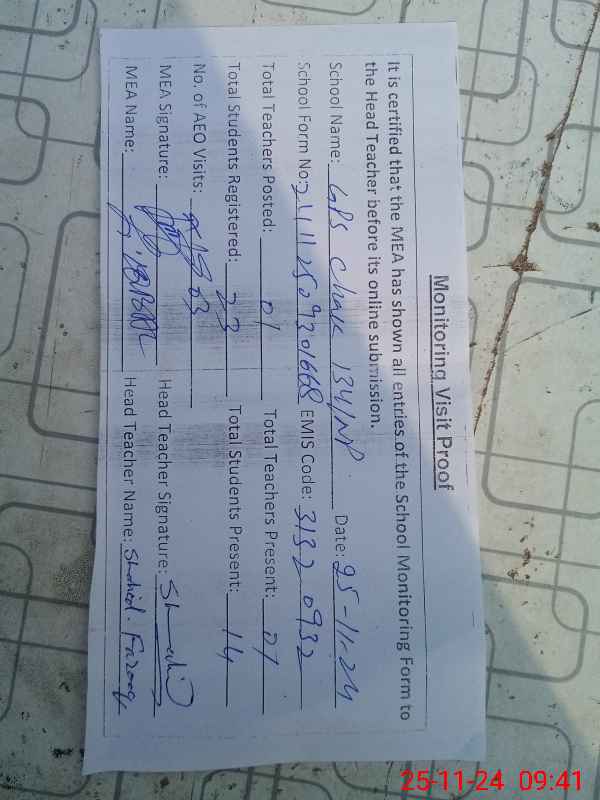 Monitoring Visit Proof
It is certified that the MEA has shown all entries of the School Monitoring Form to
the Head Teacher before its online submission.
School Name: GPS Chak 134/NP Date: 25-11-24
School Form No: 24112509301668 EMIS Code: 31320932
Total Teachers Posted: 01 Total Teachers Present: 01
Total Students Registered: 23 Total Students Present: 14
No. of AEO Visits: 03
MEA Signature: Head Teacher Signature: Shahid
MEA Name: Head Teacher Name: Shahid. Farooq
25-11-24 09:41